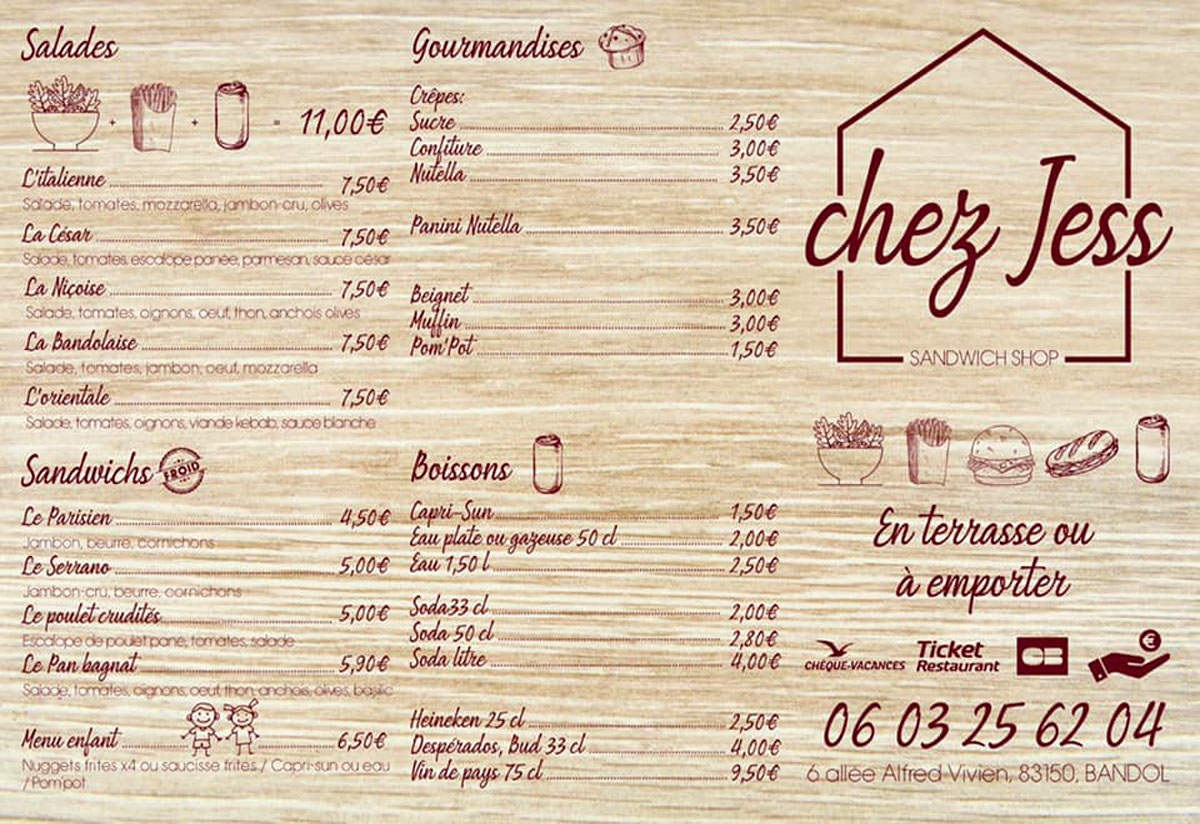 Salades
+ + = 11,00€
L'italienne 7,50€
Salade, tomates, mozzarella, jambon-cru, olives
La César 7,50€
Salade, tomates, escalope panée, parmesan, sauce césar
La Niçoise 7,50€
Salade, tomates, oignons, oeuf, thon, anchois olives
La Bandolaise 7,50€
Salade, tomates, jambon, oeuf, mozzarella
L'orientale 7,50€
Salade, tomates, oignons, viande kebab, sauce blanche
Sandwichs FROID
Le Parisien 4,50€
Jambon, beurre, cornichons
Le Serrano 5,00€
Jambon-cru, beurre, cornichons
Le poulet crudités 5,00€
Escalope de poulet pané, tomates, salade
Le Pan bagnat 5,90€
Salade, tomates, oignons, oeuf, thon, anchois, olives, basilic
Menu enfant 6,50€
Nuggets frites x4 ou saucisse frites / Capri-sun ou eau
/ Pom'pot
Gourmandises
Crêpes:
Sucre 2,50€
Confiture 3,00€
Nutella 3,50€
Panini Nutella 3,50€
Beignet 3,00€
Muffin 3,00€
Pom'Pot 1,50€
Boissons
Capri-Sun 1,50€
Eau plate ou gazeuse 50 cl 2,00€
Eau 1,50 l 2,50€
Soda33 cl 2,00€
Soda 50 cl 2,80€
Soda litre 4,00€
Heineken 25 cl 2,50€
Despérados, Bud 33 cl 4,00€
Vin de pays 75 cl 9,50€
chez Jess
SANDWICH SHOP
En terrasse ou
à emporter
CHÈQUE-VACANCES
Ticket
Restaurant
CB
€
06 03 25 62 04
6 allée Alfred Vivien, 83150, BANDOL